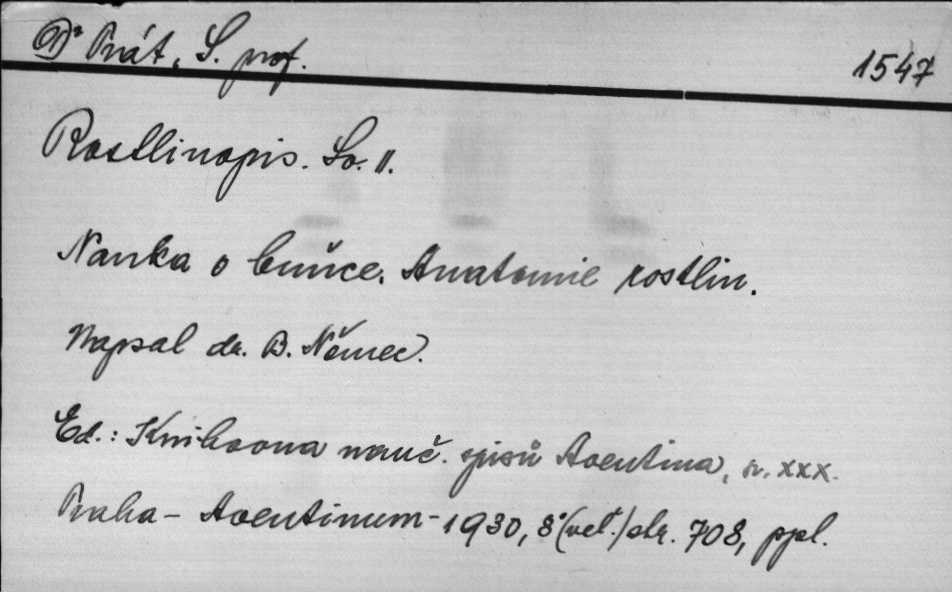 Dr Prát, S. prof.
1547
Rostlinopis. Sv. II.
Nauka o buňce. Anatomie rostlin.
Napsal dr. B. Němec.
Ed.: Knihovna nauč. spisů Aventina, sv. XXX.
Praha - Aventinum - 1930, 8° (vel.) str. 708, ppl.